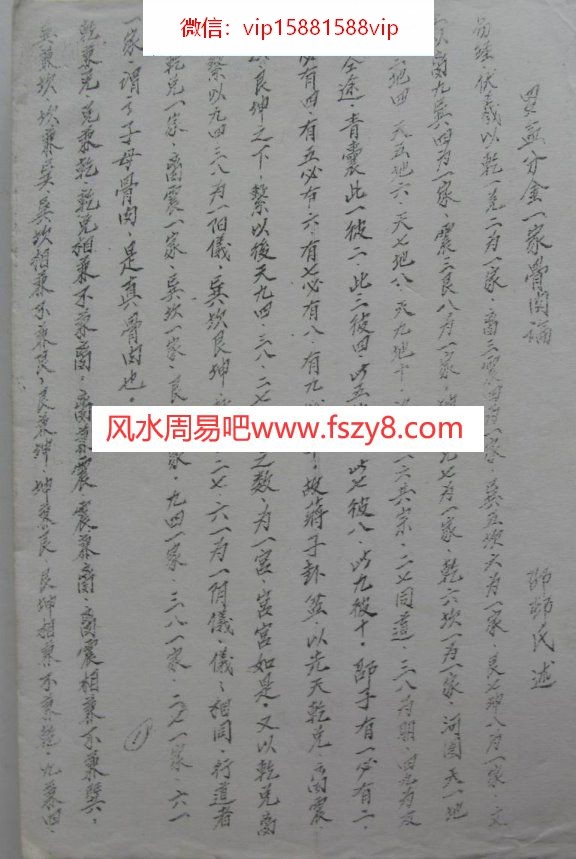 微信：vip15881588vip
罡盆分金一家骨肉論
邵邨氏述
易經伏羲以乾一兌二為一家．離三震四為一家．巽五坎六為一家．艮七坤八為一家．文
以離九巽四為一家．震三艮八為一家．坤二兌七為一家．乾六坎一為一家．河圖天一地
地四．天五地六．天七地八．天九地十．一六共宗．二七同道．三八為朋．四九為友
全途．青囊此一彼二．此三彼四．此五 此七彼八．此九彼十．邵子有一必有二．
必有四．有五必有六．有七必有八．有九 故蔣子卦盆．以先天乾兌．離震．
艮坤之下．繫以後天九四．三八．二七 之數．為一宮．宮宮如是．又以乾兌離
繫以九四三八為一陽儀．巽坎艮坤 二七．六一為一陰儀．儀儀相同．行道者
乾兌一家．離震一家．巽坎一家．艮 家．九四一家．三八一家．二七一家．六一
一家．謂之子母骨肉．是真骨肉也．
乾兼兌．兌兼乾．乾兌相兼不兼離．離兼震．震兼離．離震相兼不兼巽．
巽兼坎．坎兼巽．巽坎相兼不兼艮．艮兼坤．坤兼艮．艮坤相兼不兼乾．九兼四．
风水周易吧www.fszy8.com